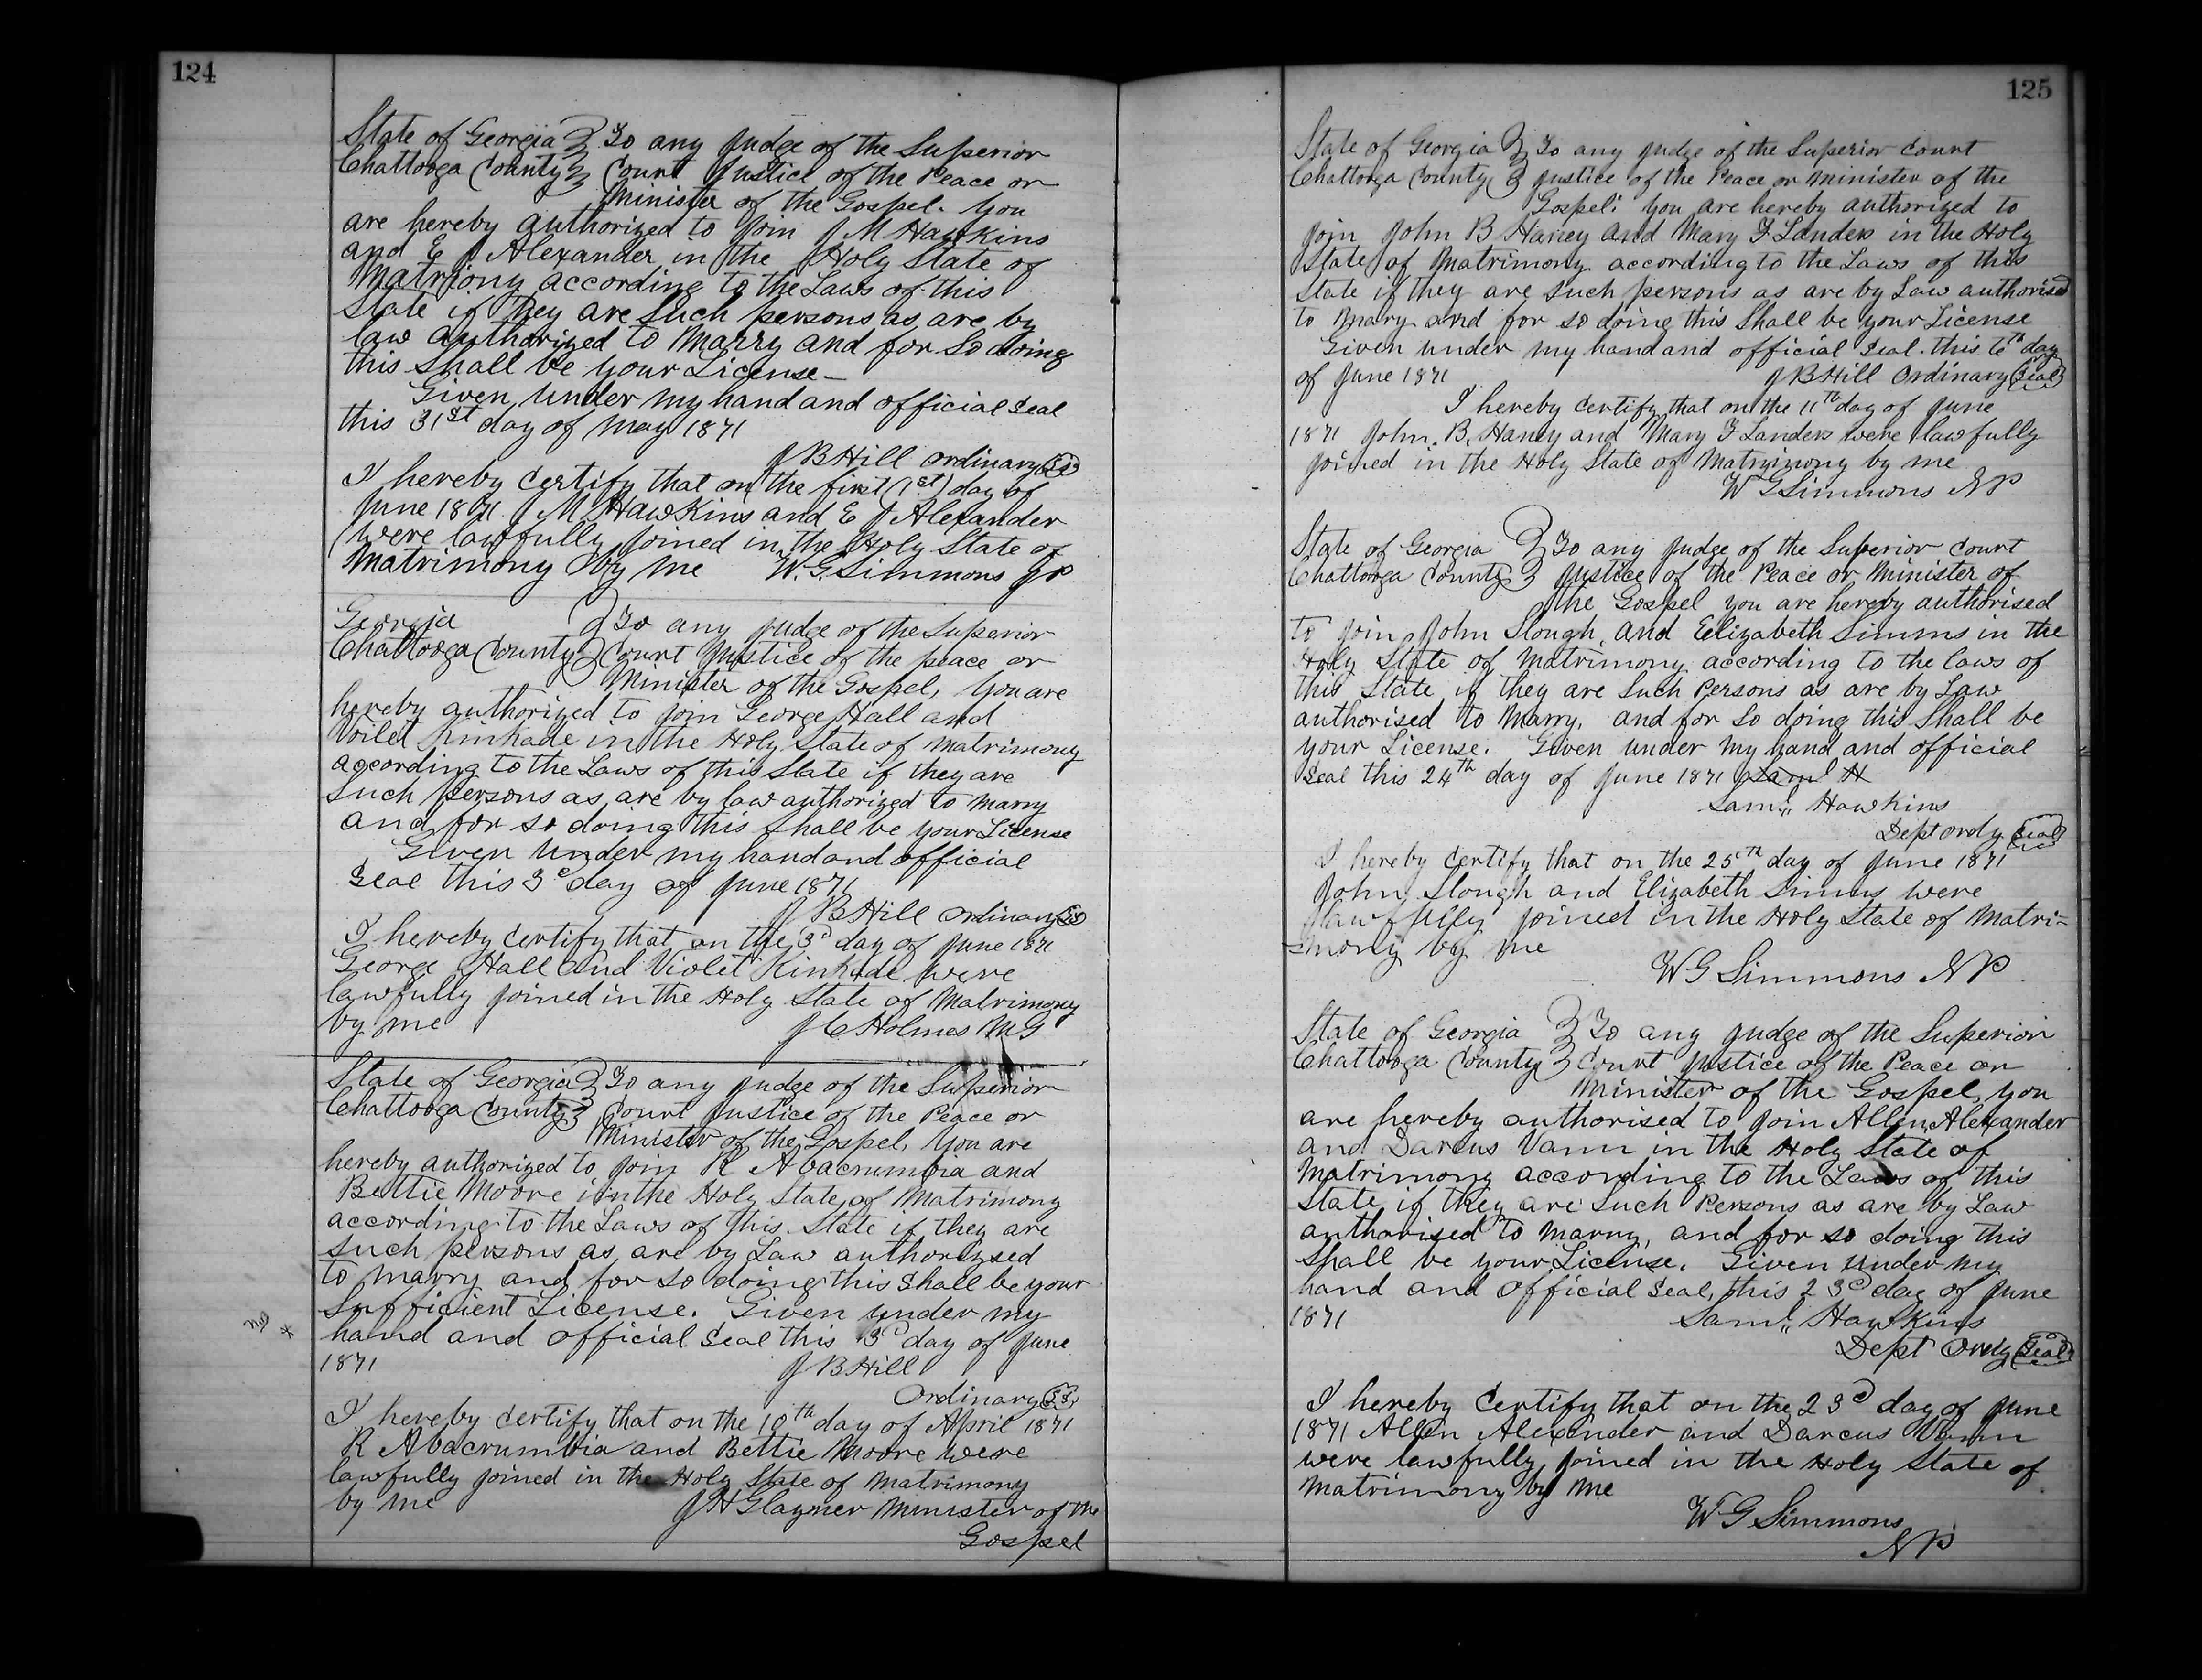 124
State of Georgia } To any Judge of the Superior
Chattooga County } Court Justice of the Peace or
Minister of the Gospel. You
are hereby authorized to join J M Hawkins
and E J Alexander in the Holy State of
Matriony according to the Laws of this
State if they are Such persons as are by
law authorized to Marry and for So doing
this Shall be your License —
Given under my hand and official Seal
this 31st day of May 1871
J B Hill Ordinary
I hereby certify that on the first (1st) day of
June 1871 J M Hawkins and E J Alexander
were lawfully joined in the Holy State of
Matrimony by me W. G. Simmons JP
Georgia } To any Judge of the Superior
Chattooga County } Court Justice of the peace or
Minister of the Gospel, You are
hereby authorized to join George Hall and
Voilet Kinkade in the Holy State of Matrimony
according to the Laws of this State if they are
Such persons as are by law authorized to marry
and for so doing this Shall be your License
Given under my hand and official
Seal this 3d day of June 1871
J B Hill Ordinary
I hereby certify that on the 3d day of June 1871
George Hall and Violet Kinkade were
lawfully joined in the Holy State of Matrimony
by me J C Holmes M G
State of Georgia } To any Judge of the Superior
Chattooga County } Court Justice of the Peace or
Minister of the Gospel, You are
hereby authorized to join R Abacrumbia and
Bettie Moore in the Holy State of Matrimony
according to the Laws of this State if they are
Such persons as are by Law authorized
to marry and for So doing this Shall be your
Sufficient License. Given under my
hand and official Seal this 3d day of June
1871 J B Hill
Ordinary
I hereby certify that on the 10th day of April 1871
R Abacrumbia and Bettie Moore were
lawfully joined in the Holy State of Matrimony
by me J H Glayner Minister of the
Gospel
125
State of Georgia } To any Judge of the Superior Court
Chattooga County } Justice of the Peace or Minister of the
Gospel: You are hereby authorized to
join John B Haney and Mary F Landers in the Holy
State of Matrimony according to the Laws of this
State if they are Such persons as are by Law authorised
to Mary and for so doing this Shall be your License
Given under my hand and official Seal this 10th day
of June 1871 J B Hill Ordinary Seal
I hereby certify that on the 11th day of June
1871 John. B. Haney and Mary F Landers were lawfully
joined in the Holy State of Matrimony by me
W G Simmons N P
State of Georgia } To any Judge of the Superior Court
Chattooga County } Justice of the Peace or Minister of
the Gospel you are hereby authorised
to join John Slough, and Eelizabeth Simms in the
Holy State of Matrimony according to the laws of
this State if they are Such Persons as are by Law
authorised to Marry, and for So doing this Shall be
your License. Given under my hand and official
Seal this 24th day of June 1871 Saml H
Saml. Hawkins
Dept Ordy Seal
I hereby certify that on the 25th day of June 1871
John Slough and Elizabeth Simms were
lawfully joined in the Holy State of Matri=
=mony by me
W G Simmons N P
State of Georgia } To any Judge of the Superior
Chattooga County } Court Justice of the Peace or
Minister of the Gospel, you
are hereby authorised to join Allen Alexander
and Darcus Vann in the Holy State of
Matrimony according to the Laws of this
State if they are Such Persons as are by Law
authorised to marry, and for so doing this
Shall be your License. Given under my
hand and official Seal, this 23d day of June
1871 Saml. Hawkins
Dept Ordy Seal
I hereby certify that on the 23d day of June
1871 Allen Alexander and Darcus Vann
were lawfully joined in the Holy State of
Matrimony by me
W G Simmons
N P